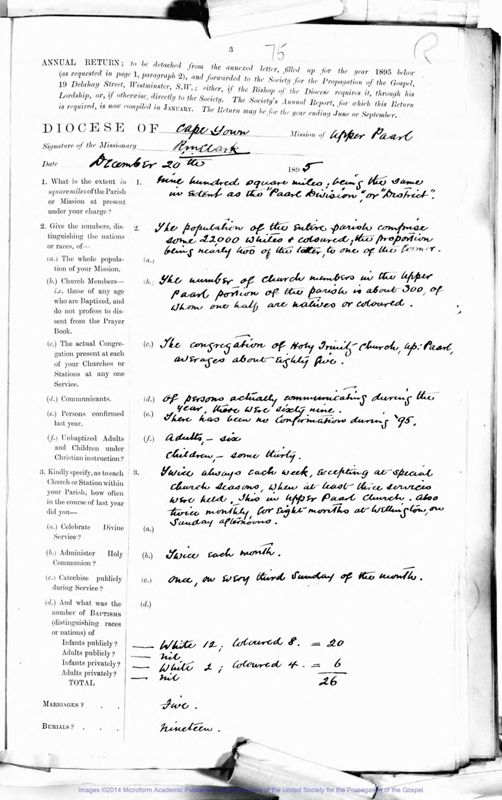 3
75
R
ANNUAL RETURN; to be detached from the annexed letter, filled up for the year 1895 below
(as requested in page 1, paragraph 2), and forwarded to the Society for the Propagation of the Gospel,
19 Delahay Street, Westminster, S.W.; either, if the Bishop of the Diocese requires it, through his
Lordship, or, if otherwise, directly to the Society. The Society's Annual Report, for which this Return
is required, is now compiled in JANUARY. The Return may be for the year ending June or September.
DIOCESE OF Cape Town Mission of Upper Paarl
Signature of the Missionary Clark
Date December 20 the 1895
1. What is the extent in
square miles of the Parish
or Mission at present
under your charge?
1. Nine hundred square miles; being the same
in extent as the "Paarl Division", or "District".
2. Give the numbers, dis-
tinguishing the nations
or races, of—
2. The population of the entire parish comprise
some 22000 whites & coloured, the proportion
being nearly two of the latter, to one of the former.
(a.) The whole popula-
tion of your Mission.
(a.)
(b.) Church Members—
i.e. those of any age
who are Baptized, and
do not profess to dis-
sent from the Prayer
Book.
(b.) The number of Church members in the Upper
Paarl portion of the parish is about 300, of
whom one half are natives or coloured.
(c.) The actual Congre-
gation present at each
of your Churches or
Stations at any one
Service.
(c.) The congregation of Holy Trinity Church, Up: Paarl,
averages about Eighty five.
(d.) Communicants.
(d.) Of persons actually communicating during the
year, there were sixty nine.
(e.) Persons confirmed
last year.
(e.) There has been no Confirmation during '95.
(f.) Unbaptized Adults
and Children under
Christian instruction?
(f.) Adults, – six
Children, – some thirty.
3. Kindly specify, as to each
Church or Station within
your Parish, how often
in the course of last year
did you—
3. Twice always each week, excepting at special
Church seasons, when at least three services
were held. This in Upper Paarl Church. Also
twice monthly, for Eight months at Wellington, on
Sunday afternoons.
(a.) Celebrate Divine
Service?
(a.)
(b.) Administer Holy
Communion?
(b.) Twice each month.
(c.) Catechise publicly
during Service?
(c.) Once, on every third Sunday of the month.
(d.) And what was the
number of BAPTISMS
(distinguishing races
or nations) of
(d.)
Infants publicly? — White 12; Coloured 8. = 20
Adults publicly? — nil
Infants privately? — White 2; Coloured 4. = 6
Adults privately? — nil
TOTAL 26
MARRIAGES? Five.
BURIALS? Nineteen.
Images ©2014 Microform Academic Publishers of the United Society for the Propagation of the Gospel